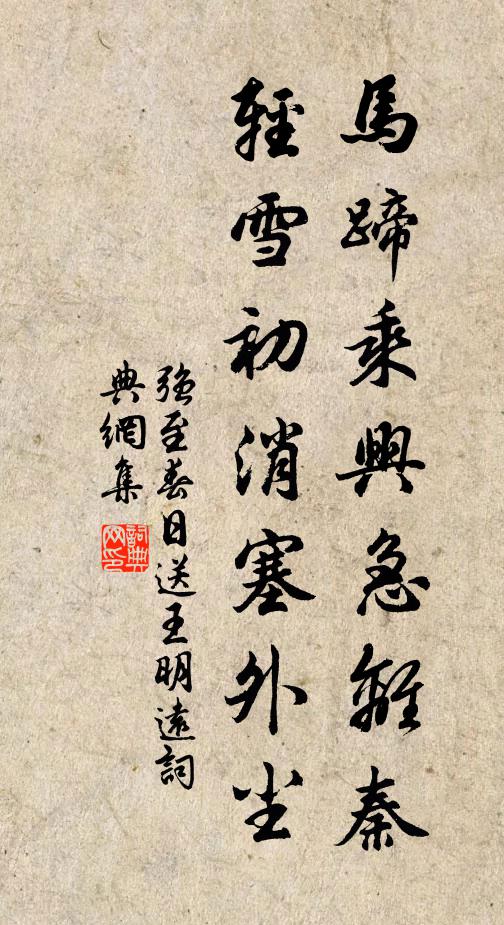 馬蹄乘興急離秦
輕雪初消塞外尘
強至春日送王明遠詞
典網集
詞典网印